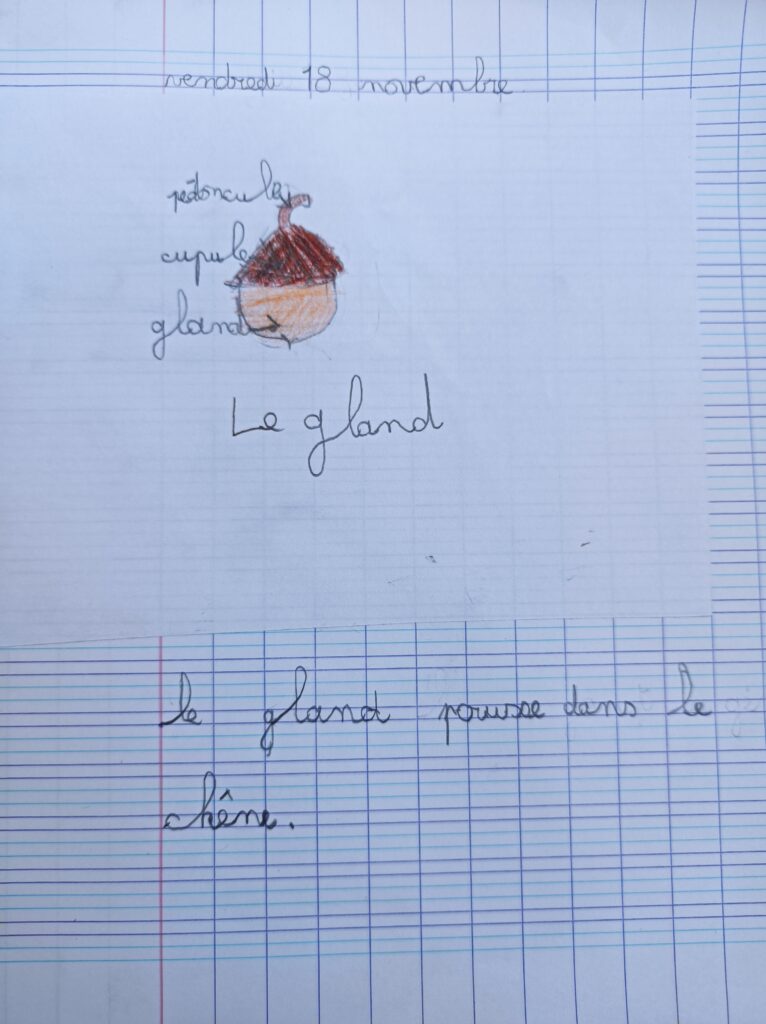 vendredi 18 novembre
pédoncule
cupule
gland
Le gland
le gland pousse dans le
chêne.